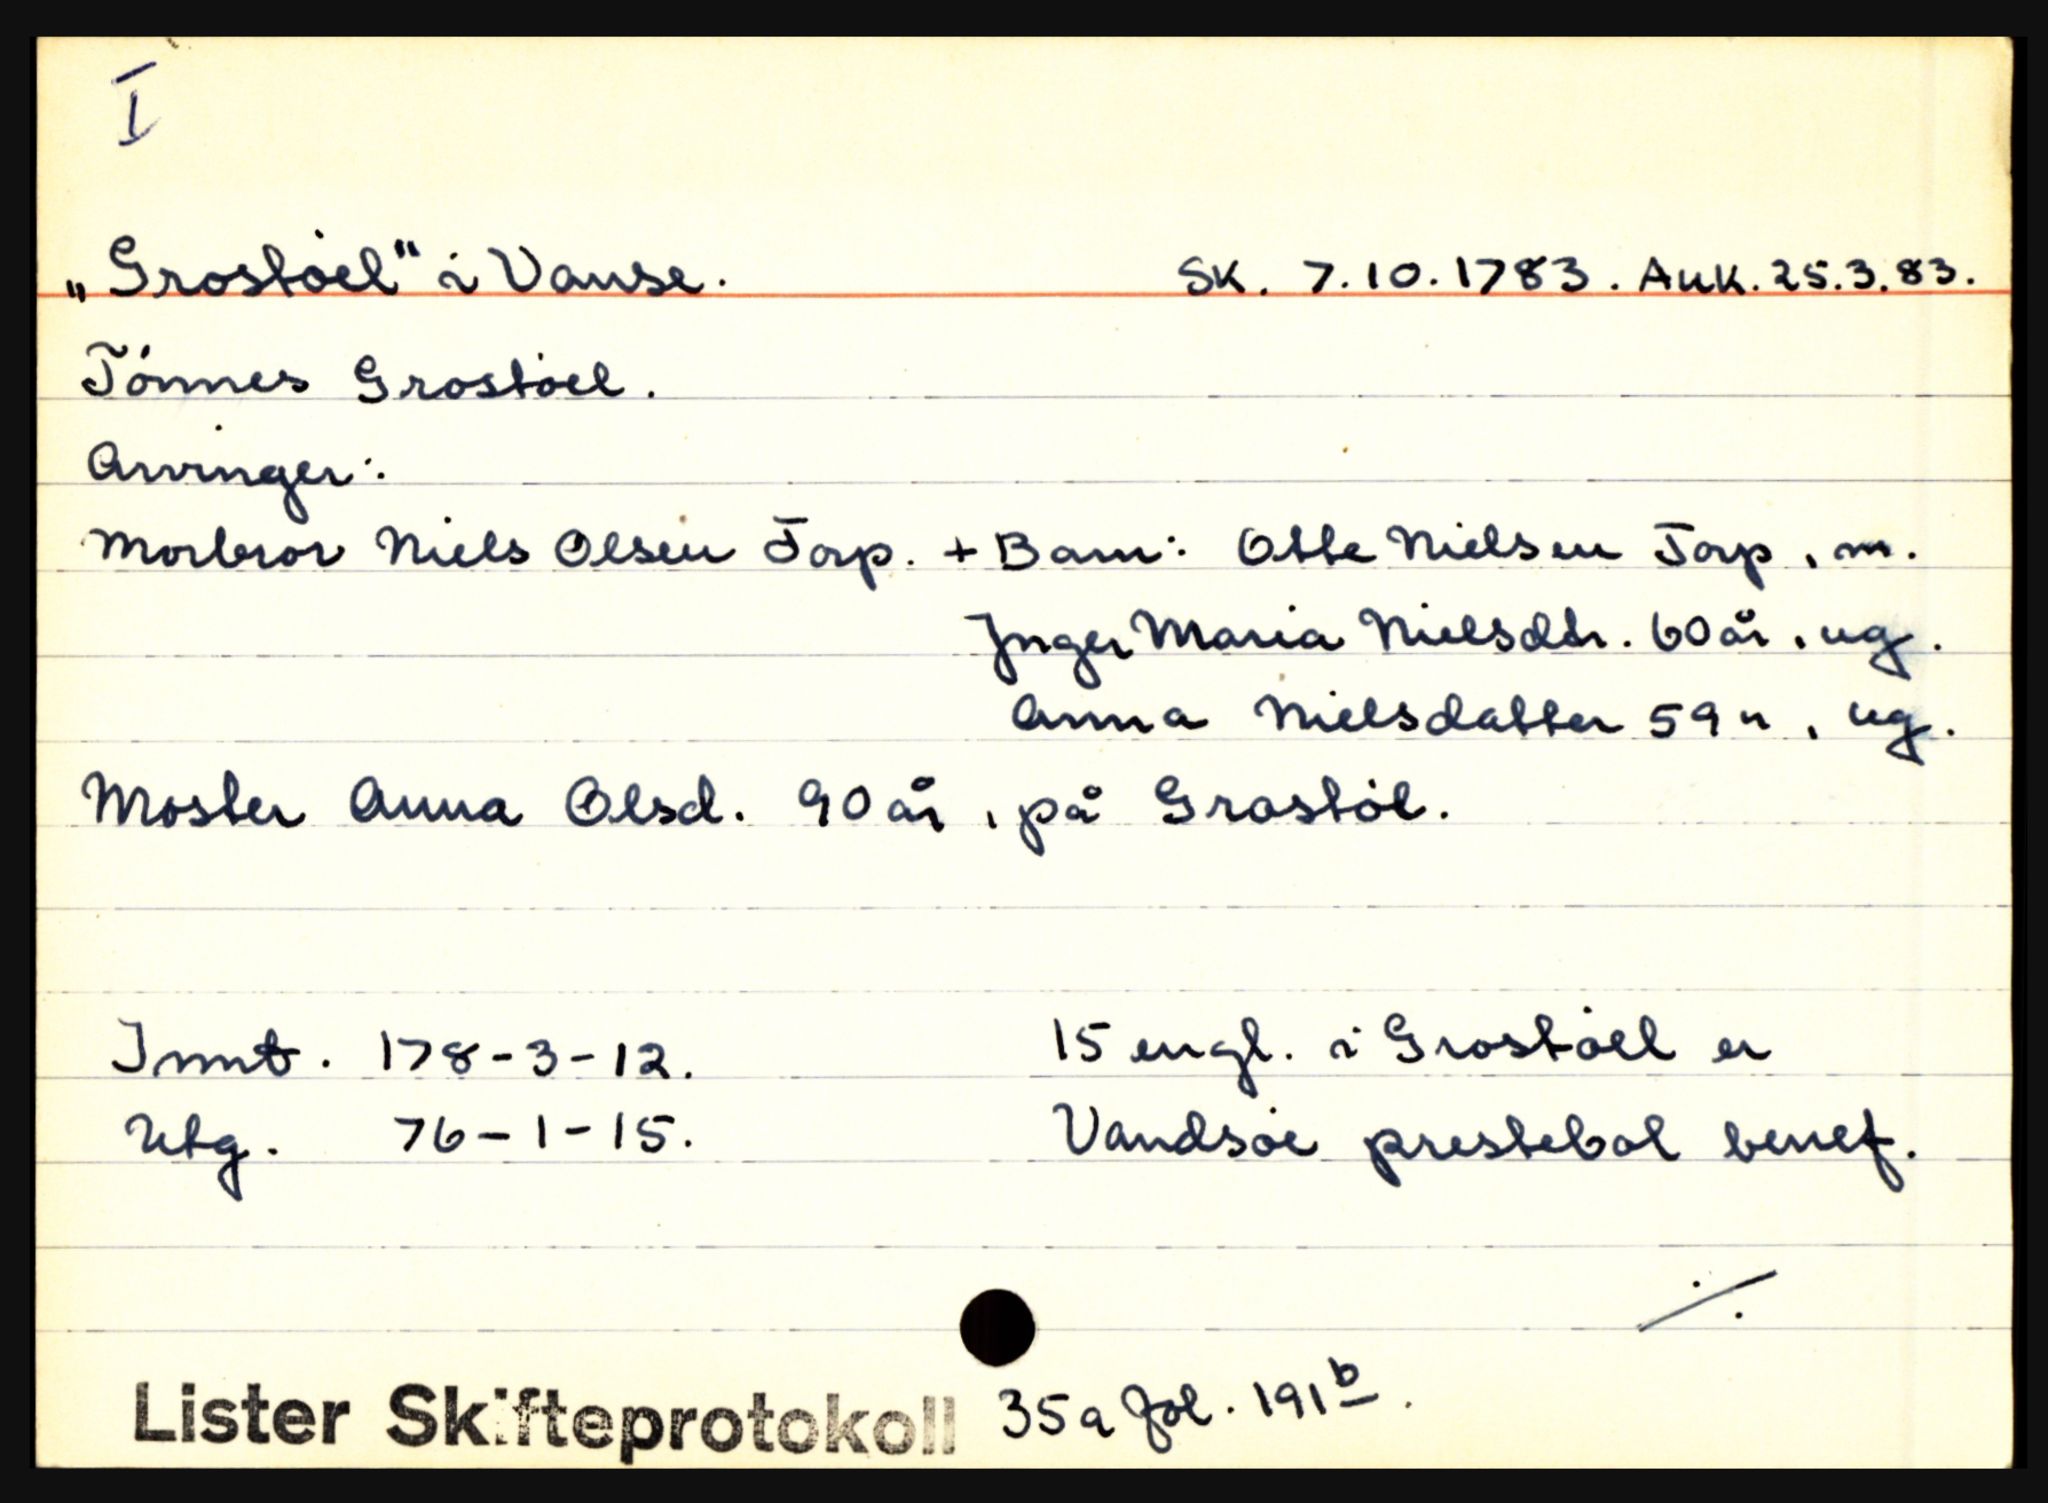 I
„Grostöel“ i Vanse. SK. 7.10.1783. Auk. 25.3.83.
Tönnes Grostöel.
Arvinger:
Morbror Niels Olsen Torp. + Barn: Otte Nielsen Torp, m.
Inger Maria Nielsdtr. 60 år, ug.
Anna Nielsdatter 59 ", ug.
Moster Anna Olsd. 90 år, på Grostöl.
Innt. 178-3-12. 15 engl. i Grostöel er
Utg. 76-1-15. Vandsöe prestebol benef.
./.
Lister Skifteprotokoll 35a fol. 191b.